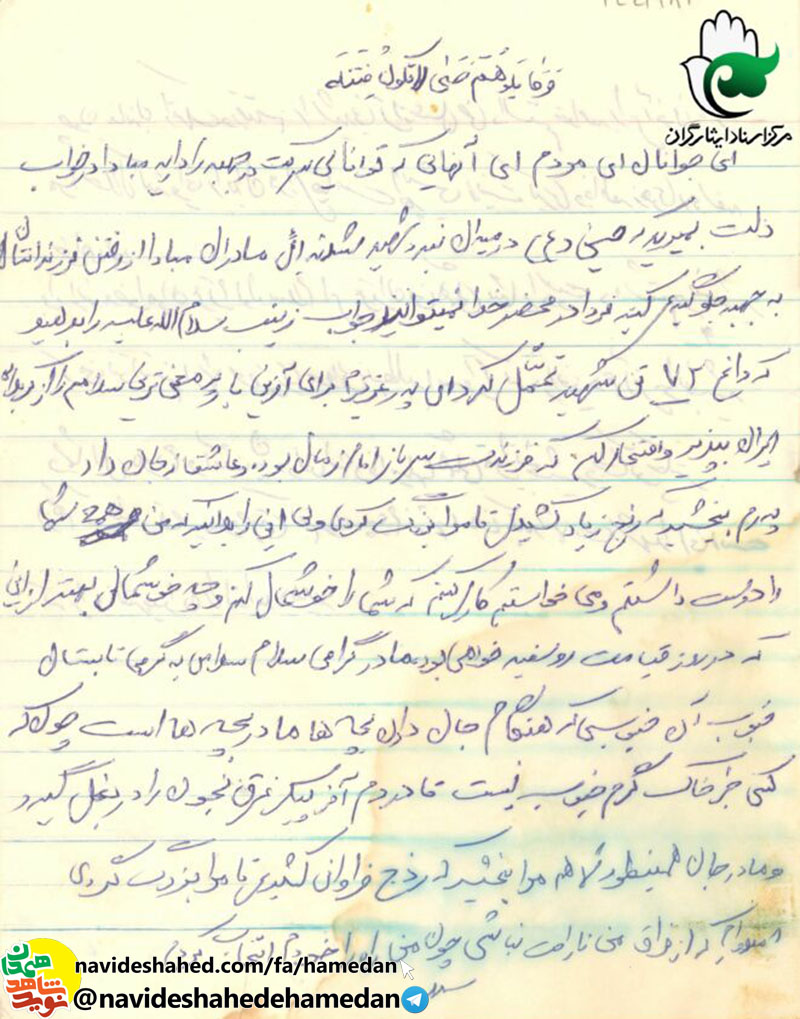 مرکز اسناد ایثارگران
وقاتلوهم حتی لا تکون فتنه
ای جوانان ای مردم ای آنهایی که توانایی شرکت در جبهه را دارید مبادا در خواب
ذلت بمیرید که حسینی در میدان نبرد شهید شد ای مادران مبادا از رفتن فرزندانتان
به جبهه جلوگیری کنید فردا در محضر خدا نمیتوانید جواب زینب سلام الله علیه را بدهید
که داغ ۷۲ تن شهید تحمل کرد ای پدر عزیزم برای آخرین بار سلامم را از کربلای
ایران بپذیر و افتخار کن که فرزندت سرباز امام زمان بوده و عاشقانه جان داد
پدرم ببخشید که رنج زیاد کشیدی تا مرا بزرگ کردی ولی این را بدانید که من شما
را دوست داشتم و می خواستم کاری کنم که شما را خوشحال کنم و چه خوشحالی بهتر از این
که در روز قیامت روسفید خواهی بود مادر گرامی سلام سلامی به گرمی تابستان
خوب آن هنگام جان دادن بچه ها مادر بچه ها است چون که
کسی جز خاک گرم خوب نیست تا در دم آخر پیکر غرق بخون را در بغل گیرد
و مادر جان همینطور تو هم مرا ببخشید که رنج فراوانی کشیدی تا مرا بزرگ کردی
امیدوارم که از فراق من ناراحت نباشی چون من این راه را خودم انتخاب کردم
نوید شاهد همدان
navideshahed.com/fa/hamedan
@navideshahedehamedan